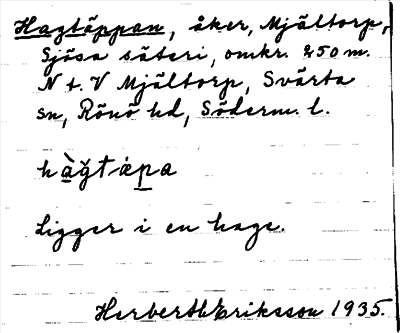 Hagtäppan, åker, Mjältorp,
Sjösa säteri, omkr. 250 m.
N t. V Mjältorp, Svärta
sn, Rönö hd, Söderm. l.
hàğtȧpa
Ligger i en hage.
Herbert Eriksson 1935.